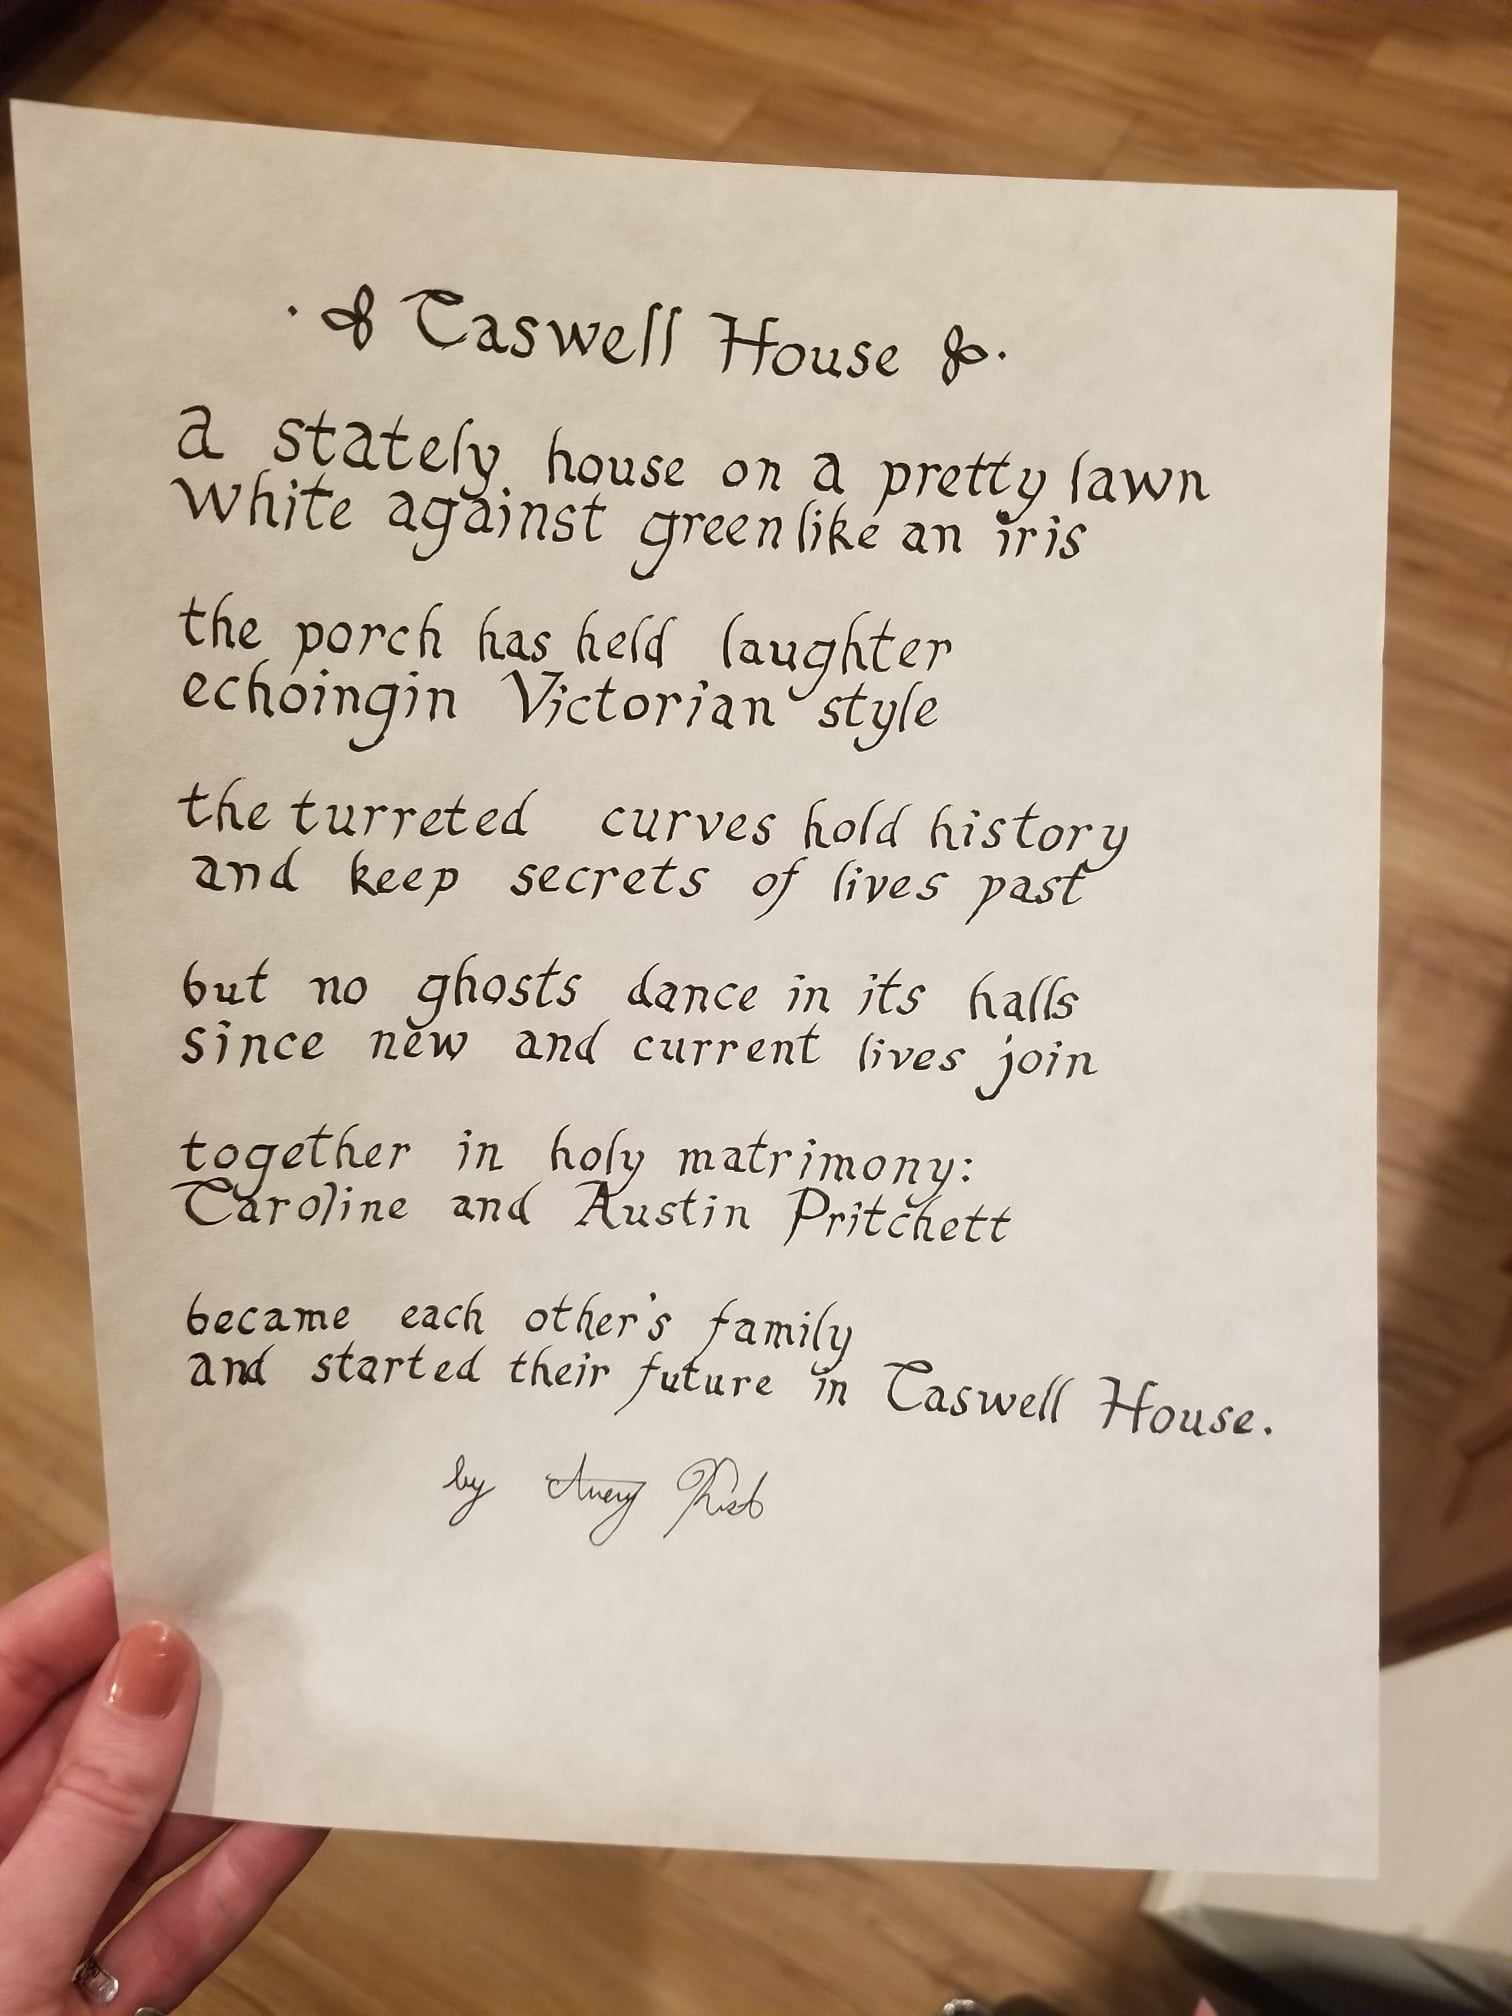 Caswell House
a stately house on a pretty lawn
white against green like an iris
the porch has held laughter
echoing in Victorian style
the turreted curves hold history
and keep secrets of lives past
but no ghosts dance in its halls
since new and current lives join
together in holy matrimony:
Caroline and Austin Pritchett
became each other's family
and started their future in Caswell House.
by Avery